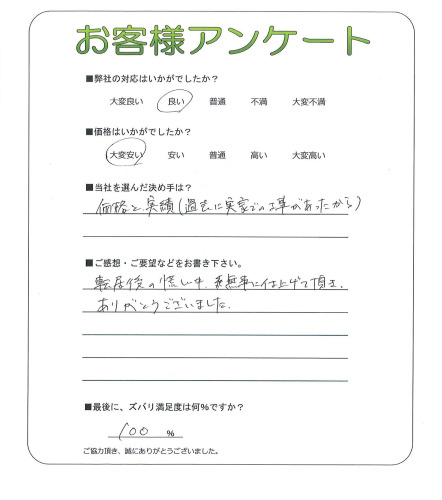 お客様アンケート
■弊社の対応はいかがでしたか？
大変良い 良い 普通 不満 大変不満
■価格はいかがでしたか？
大変安い 安い 普通 高い 大変高い
■当社を選んだ決め手は？
価格と実績(過去に実家での工事があったから)
■ご感想・ご要望などをお書き下さい。
転居後の慌し中、無事に仕上げて頂き、
ありがとうございました。
■最後に、ズバリ満足度は何%ですか？
100 %
ご協力頂き、誠にありがとうございました。